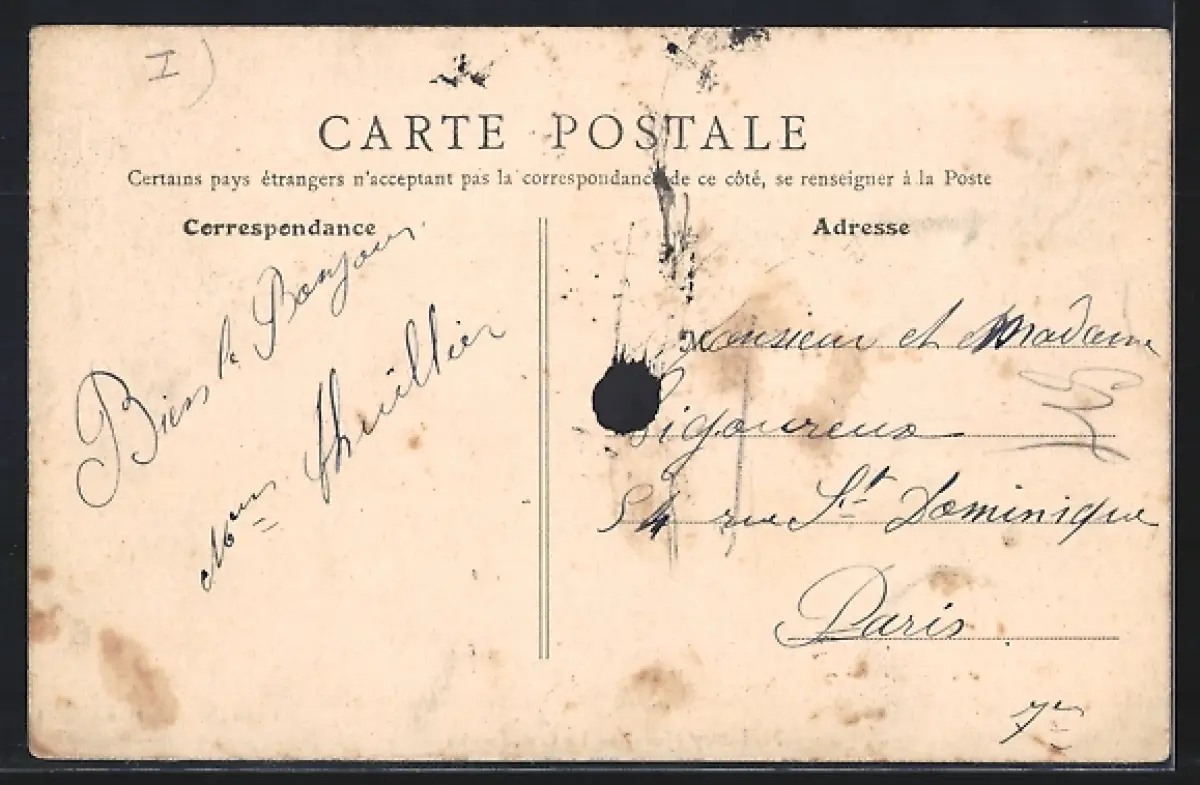 I)
CARTE POSTALE
Certains pays étrangers n'acceptant pas la correspondance de ce côté, se renseigner à la Poste
Correspondance
Bien le Bonjour
Thuillier
Adresse
Monsieur et Madame
Rigoureux
54 rue St Dominique
Paris
7e